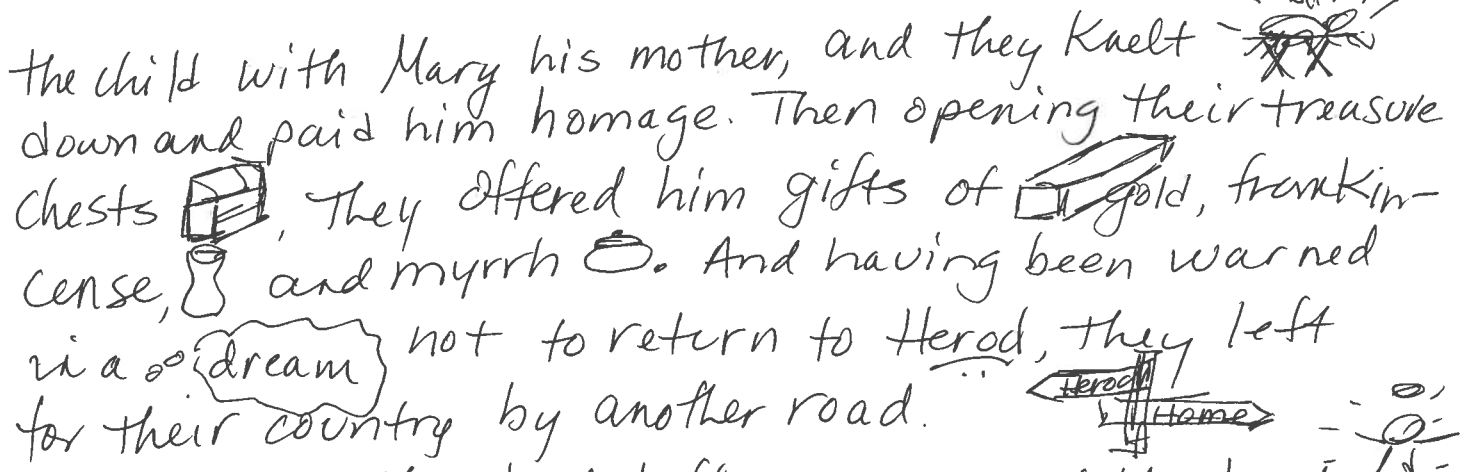 the child with Mary his mother, and they knelt
down and paid him homage. Then opening their treasure
chests, They offered him gifts of gold, frankin-
cense, and myrrh. And having been warned
in a dream not to return to Herod, they left
Herod
for their country by another road.
Home